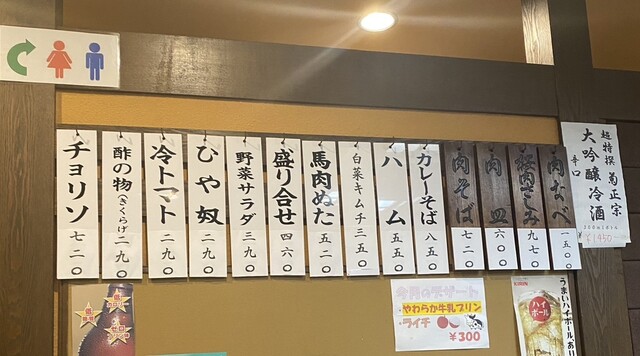 チョリソ 七二〇
酢の物(きくらげ) 二九〇
冷トマト 二九〇
ひや奴 二九〇
野菜サラダ 三九〇
盛り合せ 四六〇
馬肉ぬた 五二〇
白菜キムチ 三五〇
ハム 五五〇
カレーそば 八五〇
肉そば 七二〇
肉皿 六〇〇
九七〇
肉なべ 一五〇〇
超特撰 菊正宗
大吟醸冷酒
辛口
¥1450
今月のデザート
・やわらか牛乳プリン
・ライチ
¥300
うまいハイボール、あ
ハイボール